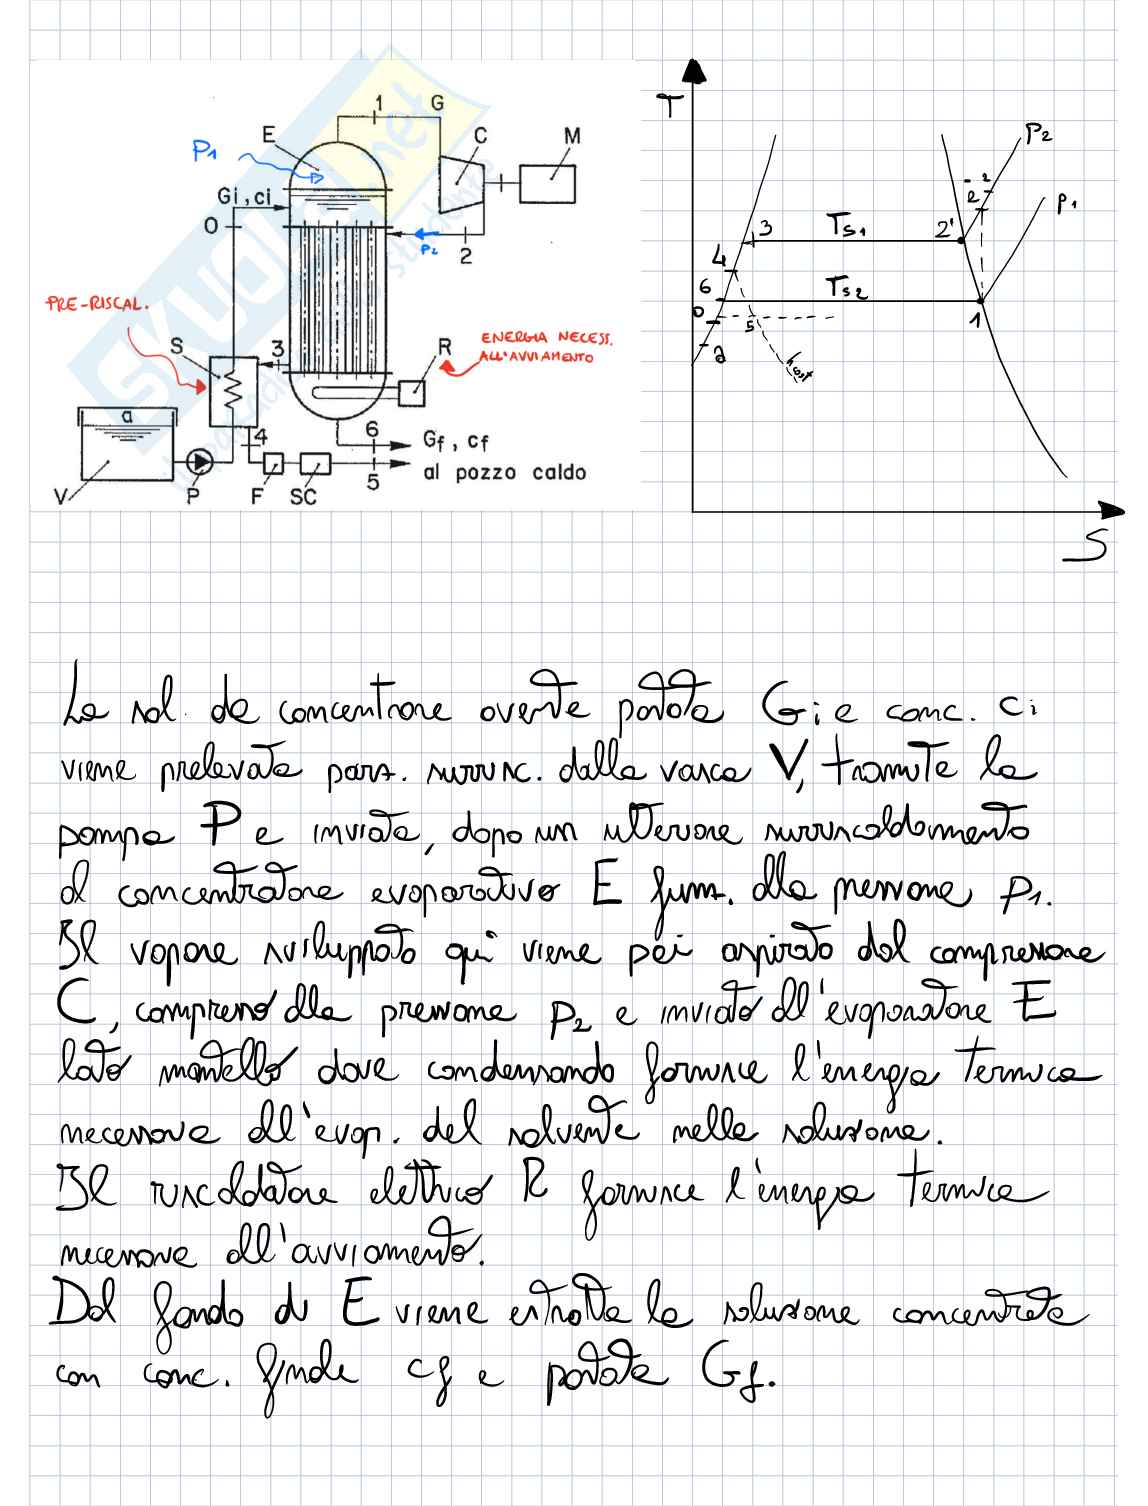 1 G
E C M
P1
Gi, ci
0
P2 2
PRE-RISCAL.
S 3 R
ENERGIA NECESS.
ALL'AVVIAMENTO
a
4 6 Gf, cf
al pozzo caldo
V P F SC 5
T
P2
2
2
P1
3 Ts1 2'
4
6 Ts2
0 5 1
a
S
La sol. da concentrare avente portata Gi e conc. ci
viene prelevata parz. surrisc. dalla vasca V, tramite la
pompa P e inviata, dopo un ulteriore surriscaldamento
al concentratore evaporativo E funz. alla pressione P1.
Il vapore sviluppato qui viene poi aspirato dal compressore
C, compresso alla pressione P2 e inviato all'evaporatore E
lato mantello dove condensando fornisce l'energia termica
necessaria all'evap. del solvente nella soluzione.
Il riscaldatore elettrico R fornisce l'energia termica
necessaria all'avviamento.
Dal fondo di E viene estratta la soluzione concentrata
con conc. finale cf e portata Gf.